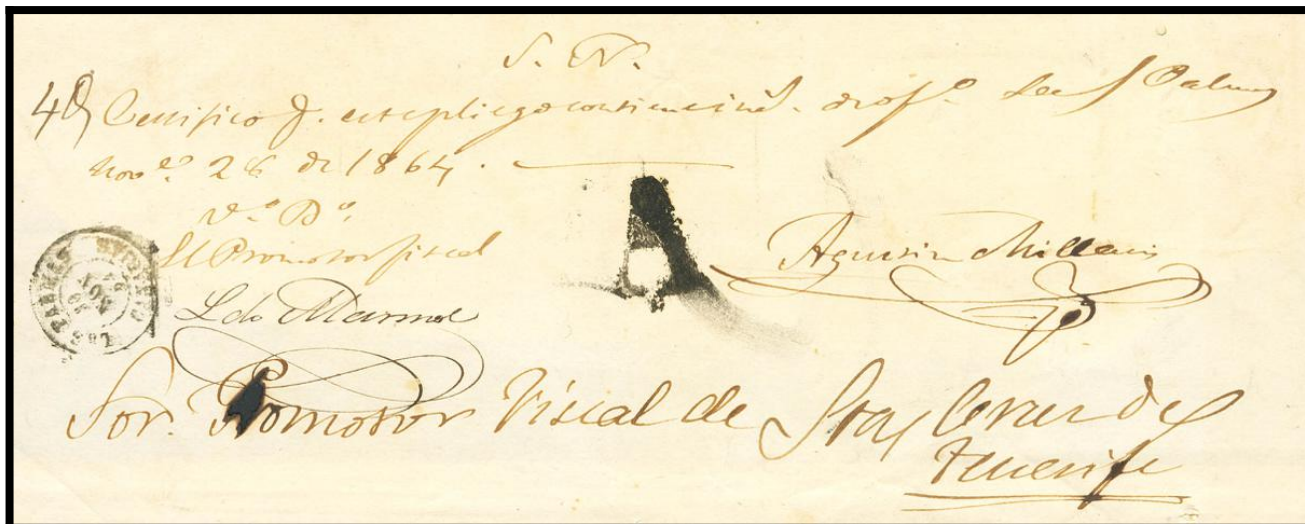 S. N.
Certifico q. este pliego contiene dros de of.o Las Palmas
Nov.e 26 de 1864.
V.o B.o
El Promotor fiscal
Ldo Marmol
Agustin Millares
LAS PALMAS
26 NOV
Sor. Promotor Fiscal de Sta Cruz de
Tenerife